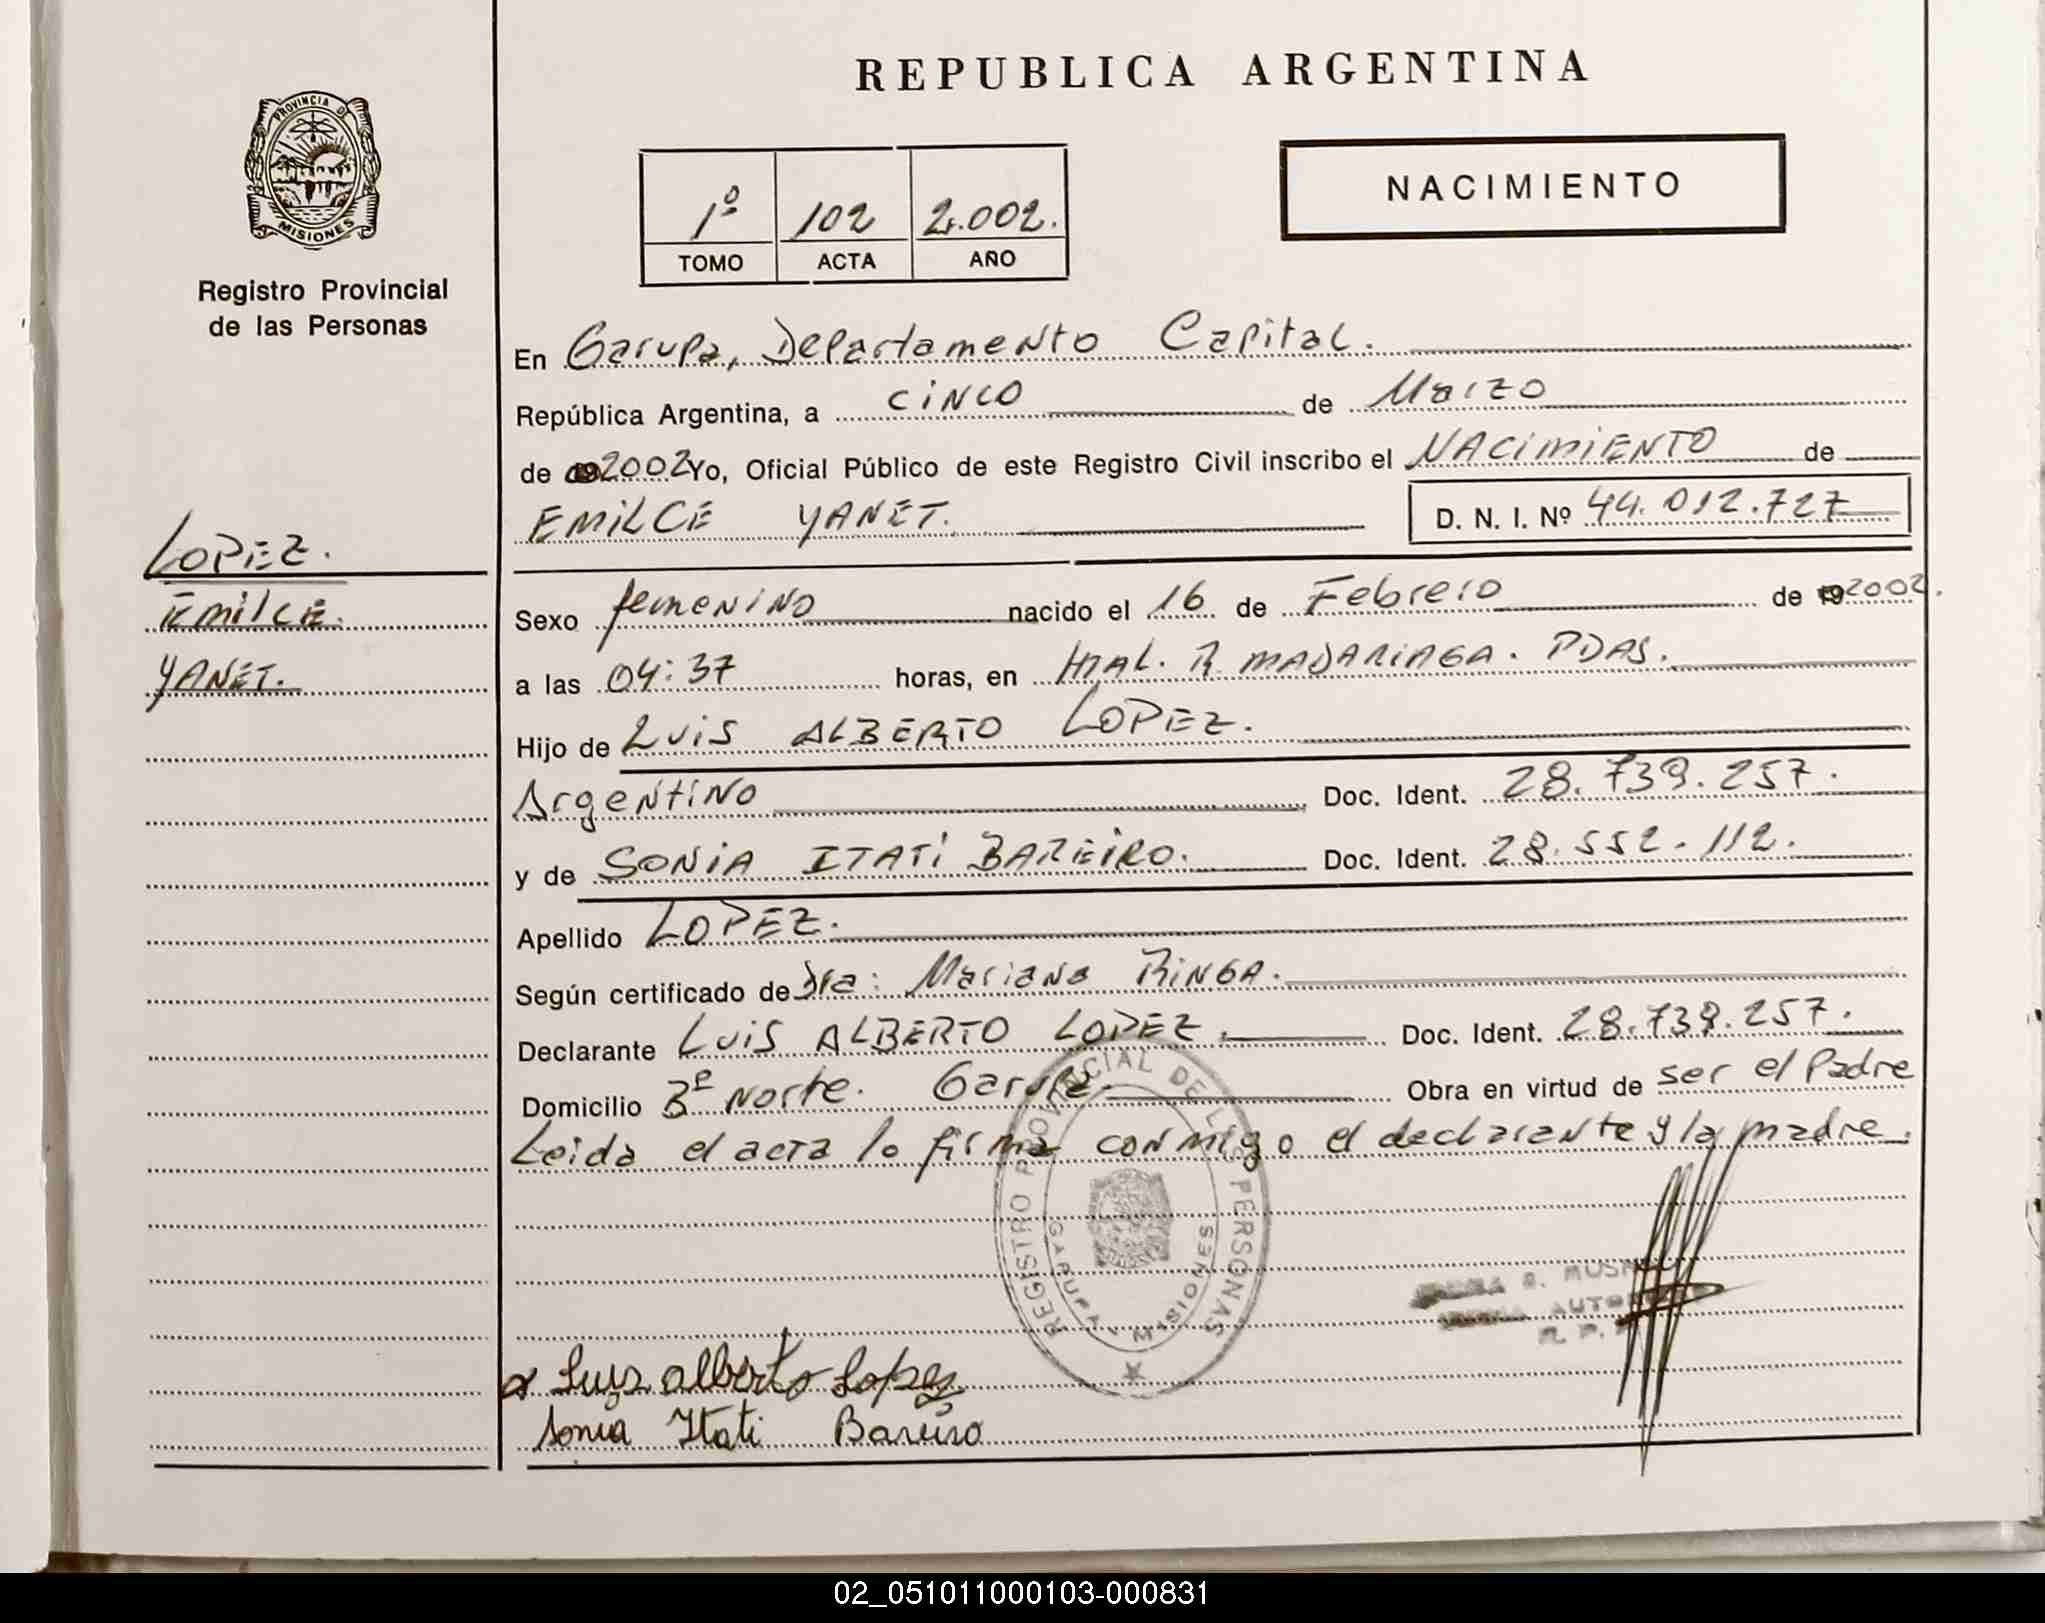 REPUBLICA ARGENTINA
PROVINCIA DE
MISIONES
Registro Provincial
de las Personas
1º 102 2.002.
TOMO ACTA AÑO
NACIMIENTO
En Garupa, Departamento Capital.
República Argentina, a CINCO de Marzo
de 192002 Yo, Oficial Público de este Registro Civil inscribo el NACIMIENTO de
EMILCE YANET. D. N. I. Nº 44.012.727
LOPEZ.
EMILCE.
YANET.
Sexo femENINO nacido el 16 de Febrero de 192002.
a las 04:37 horas, en HTAL. R MADARIAGA. PDAS.
Hijo de LUIS ALBERTO LOPEZ.
ArgeNtiNo Doc. Ident. 28.739.257.
y de SONIA ITATI BAREIRO. Doc. Ident. 28.552.112.
Apellido LOPEZ.
Según certificado de Dra: Mariana RINGA.
Declarante LUIS ALBERTO LOPEZ. Doc. Ident. 28.739.257.
Domicilio Bº Norte. Garupa. Obra en virtud de ser el Padre
Leida el acta lo firma conmigo el declarante y la madre.
REGISTRO PROVINCIAL DE LAS PERSONAS
GARUPA - MISIONES
AUTO
R. P. P
Luis alberto Lopez
Sonia Itati Bareiro
02_051011000103-000831